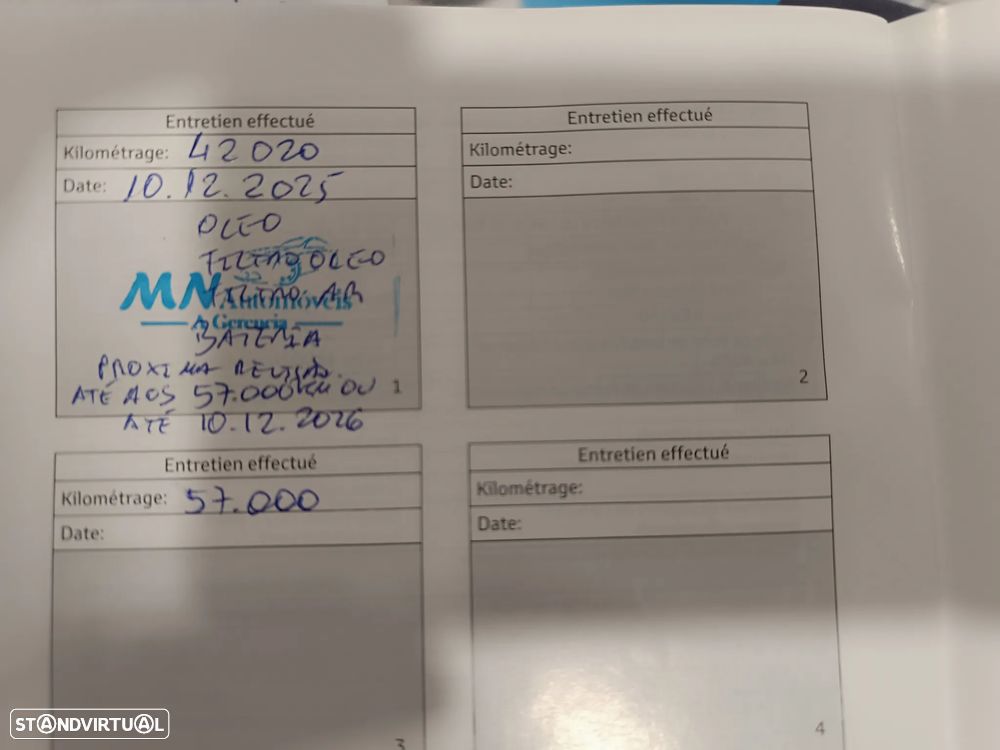 Entretien effectué
Kilométrage: 42 020
Date: 10.12.2025
OLEO
FILTRO OLEO
FILTRO AR
MN Automóveis
A Gerencia
BATERIA
PROXIMA REVISÃO
ATÉ AOS 57.000KM OU
ATÉ 10.12.2026
1
Entretien effectué
Kilométrage:
Date:
2
Entretien effectué
Kilométrage: 57.000
Date:
3
Entretien effectué
Kilométrage:
Date:
4
STANDVIRTUAL